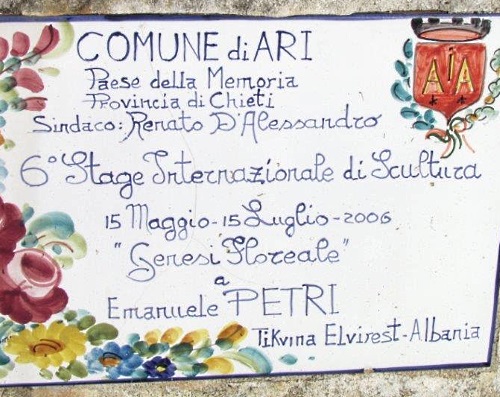 COMUNE di ARI
Paese della Memoria
Provincia di Chieti
Sindaco: Renato D'Alessandro
6° Stage Internazionale di Scultura
15 Maggio-15 Luglio-2006
"Genesi Floreale"
a
Emanuele PETRI
Tikvina Elvirest-Albania
AIA